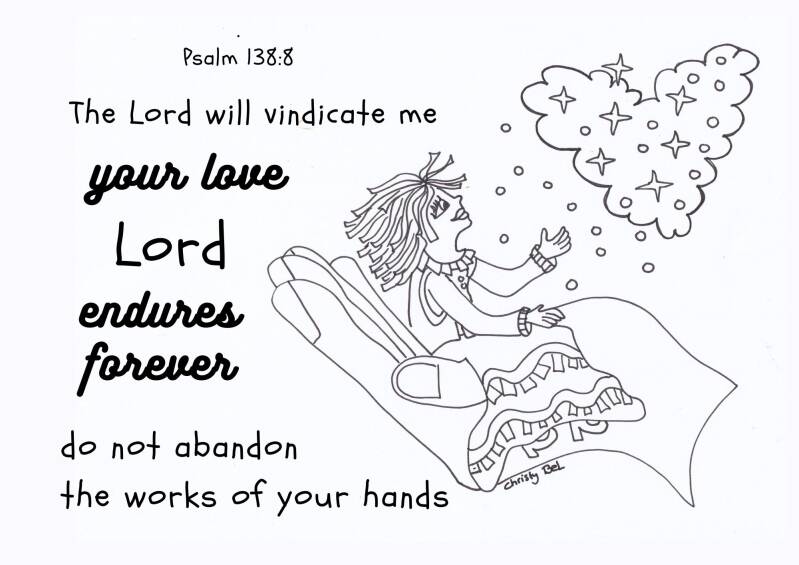 Psalm 138:8
The Lord will vindicate me
your love
Lord
endures
forever
do not abandon
the works of your hands
Christy Bel